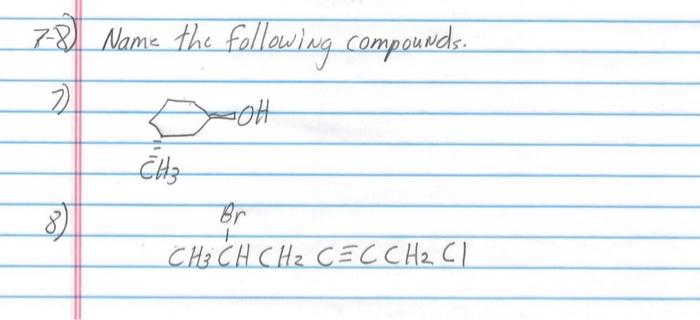 7-8) Name the following compounds.
7)
OH
CH3
8)
Br
CH3 CH CH2 C≡C CH2 Cl